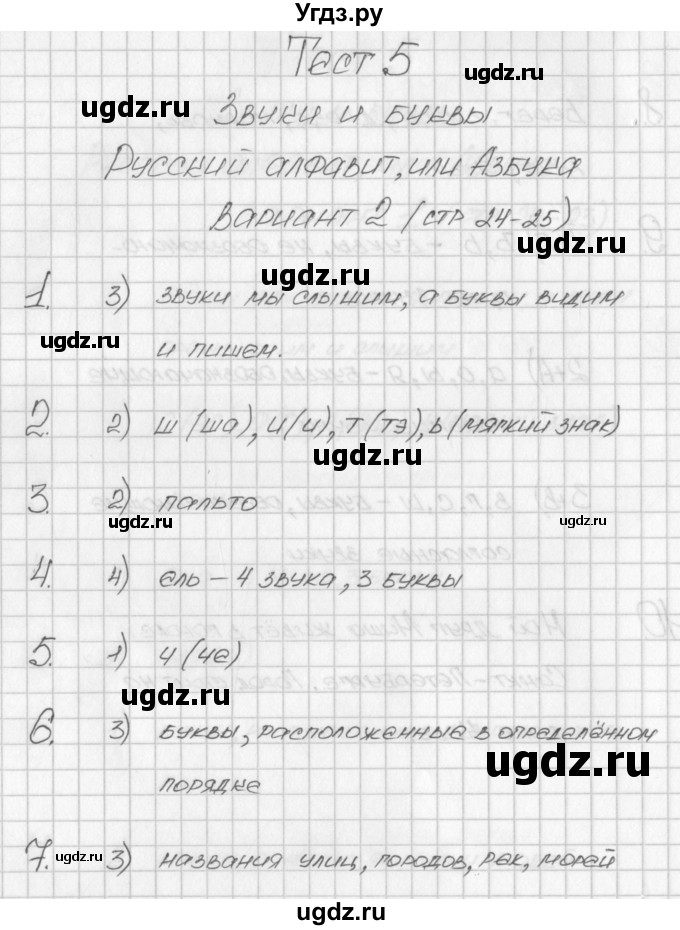 Угдз.ру
Тест 5
ugdz.ru
ugdz.ru
Звуки и буквы
Русский алфавит, или Азбука
Вариант 2 (стр 24-25)
ugdz.ru
ugdz.ru
1. 3) звуки мы слышим, а буквы видим
ugdz.ru
и пишем.
2. 2) ш (ша), и (и), т (тэ), ь (мягкий знак)
ugdz.ru
3. 2) пальто
ugdz.ru
ugdz.ru
4. 4) ель – 4 звука, 3 буквы
5. 1) Ч (че)
ugdz.ru
6. 3) буквы, расположенные в определённом
ugdz.ru
порядке
7. ugdz.ru 3) названия улиц, городов, рек, морей
ugdz.ru